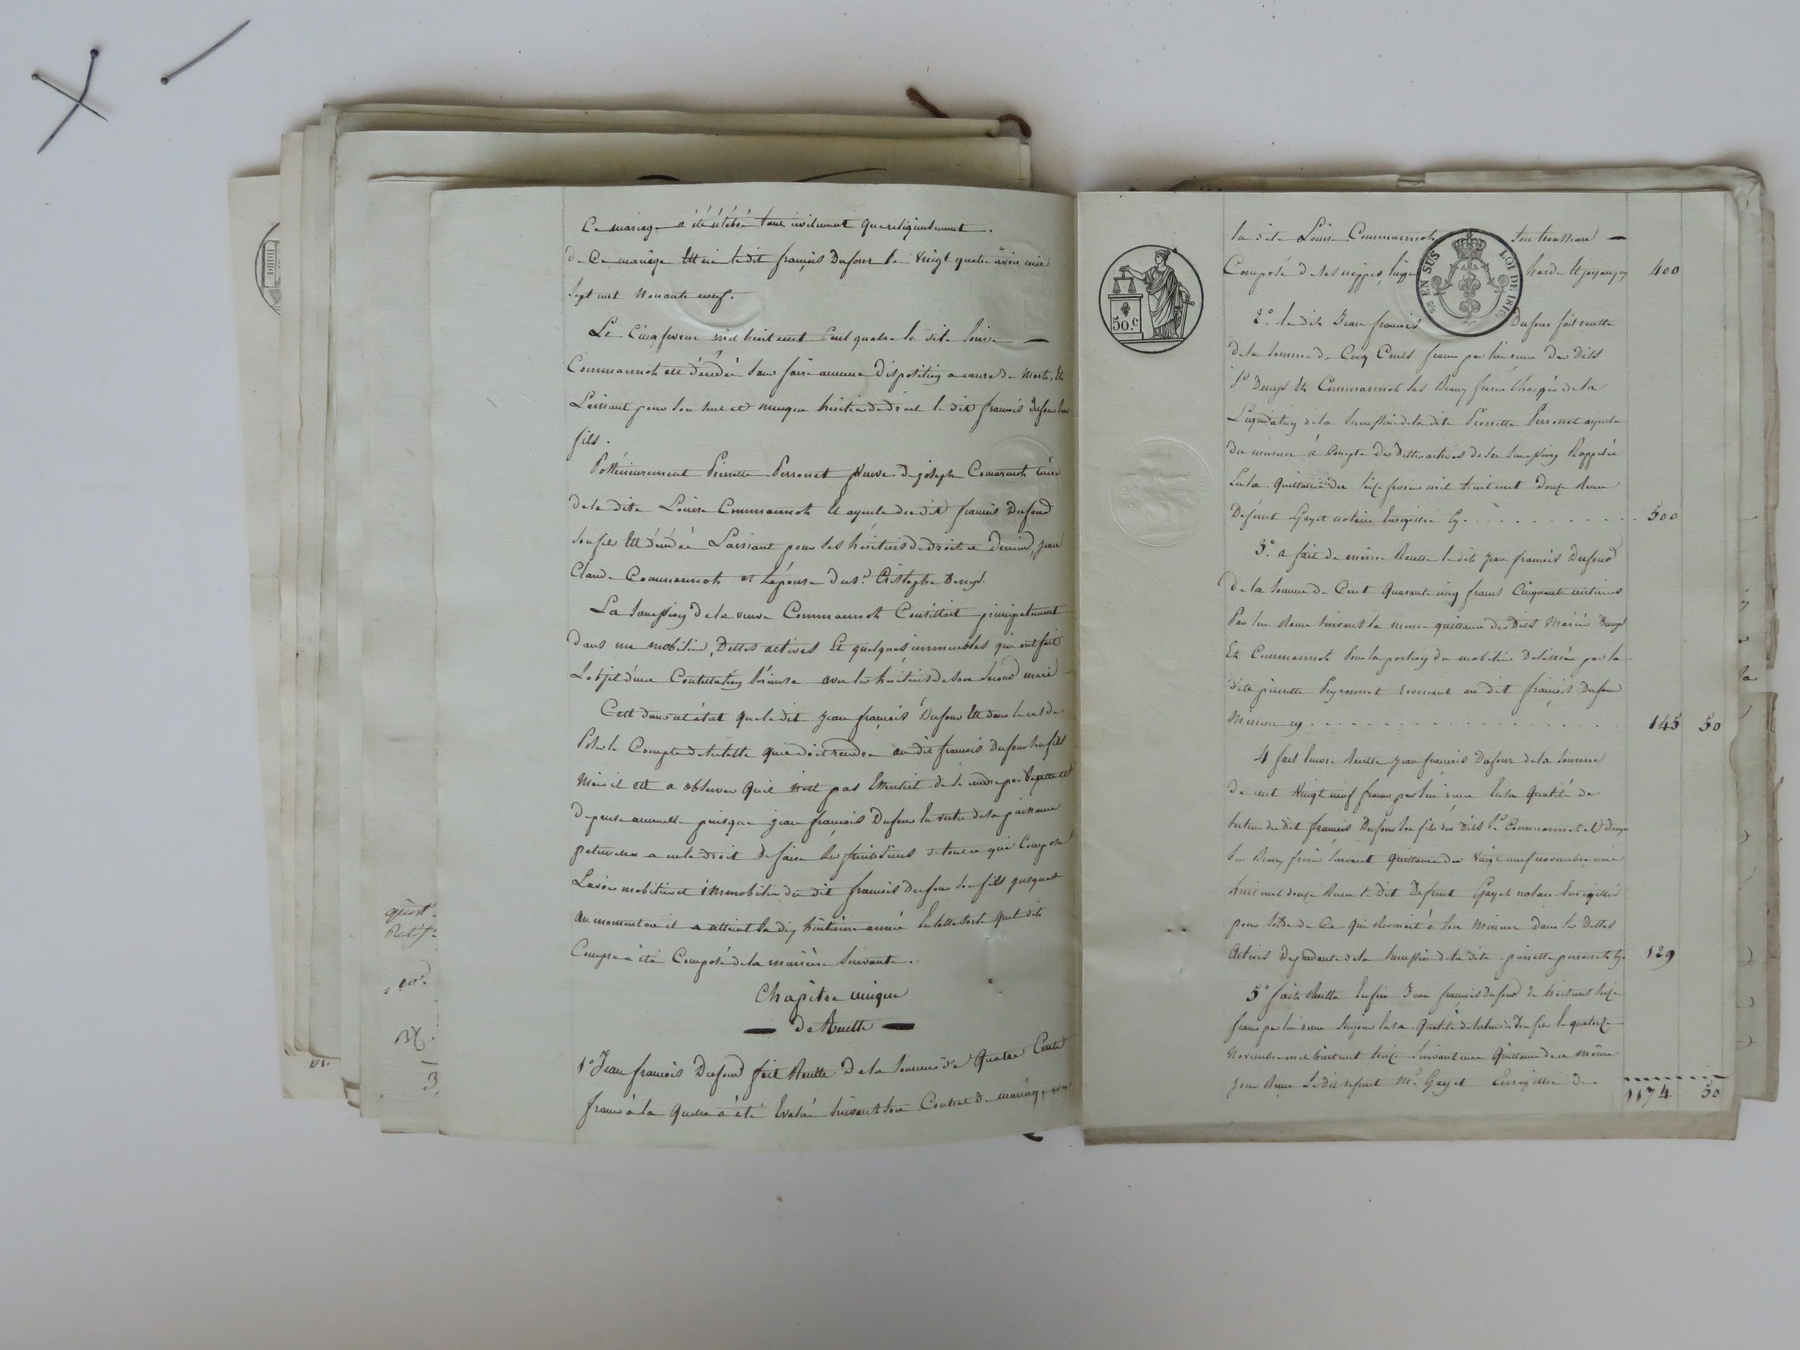 Ce mariage a été célébré tant civilement que religieusement.
de Ce mariage Est né le dit françois Dufour le Vingt quatre avril mil
sept cent Nonante neuf.
Le Cinq fevrier mil huit cent quatre la dite Louise
Commarmoth est décédée sans faire aucune disposition a cause de Mort, Et
Laissant pour son seul et unique héritier de droit le dit françois Dufour son
fils.
Postérieurement Pierrette Perronet veuve de joseph Comarmoth mère
de la dite Louise Commarmoth Et ayeule du dit françois Dufour
son fils Est décédée Laissant pour ses héritiers de droit ce dernier, jean
Claude Commarmoth et l'épouse du sr. Cristophe Denys.
La succession de la veuve Commarmoth Consistait principalement
dans un mobilier, Dettes actives Et quelques immeubles qui ont fait
L'objet d'une Contestation sérieuse avec les héritiers de son second mari
C'est dans cet état que le dit jean françois Dufour Est dans le cas de
Poser le Compte de tutelle qu'il doit rendre au dit françois Dufour son fils
Mais il est a observer qu'il n'est pas Essentiel de le rendre par Recette et
depense annuelle puisque jean françois Dufour En vertu de sa puissance
paternelle a eu le droit De faire les fruits siens de tout ce qui Compose
L'avoir mobilier et immobilier du dit françois Dufour son fils jusques
au moment où il a atteint sa dix huitième année En telle sorte que le dit
Compte a été Composé de la manière Suivante.
Chapitre unique
de Recette
1° Jean françois Dufour fait Recette De la Somme de Quatre Cents
francs à la Quelle a été Evalué Suivant son Contrat de mariage avec
la dite Louise Commarmoth son trousseau
Composé de ses nippes, linge hardes Et joyaux 400
50.c
EN SUS LOI DE 1816
2.° le dit Jean françois Dufour fait recette
de la Somme de Cinq Cents francs par lui reçue Des Dits
Sr Denys Et Commarmoth ses Beaux freres Chargés de la
Liquidation de la Succession de la dite Pierrette Perronet ayeule
du mineur à Compte Des Dettes actives de sa Succession Rappelée
En la quittance du seize fevrier mil huit cent douze Reçue
Defunt Gayet notaire Enregistrée 500
3.° a fait de même Recette le dit Jean françois Dufour
de la Somme de Cent Quarante cinq francs Cinquante centimes
Par lui Reçue suivant la même quittance des Dits Mariés Denys
Et Commarmoth Pour la portion du mobilier Delaissée par la
dite pierrette Peyronnet revenant au dit françois Dufour
Mineur 145 50
4 fait Encore Recette Jean françois Dufour de la Somme
de cent Vingt neuf francs par lui reçue En sa Qualité de
tuteur du dit françois Dufour son fils des Dits Sr Commarmoth Et Denys
Ses Beaux frères Suivant Quittance du Vingt neuf novembre mil
huit cent douze Reçue le Dit Defunt Gayet notaire Enregistrée
pour solde de Ce qui Revenoit à son Mineur dans les Dettes
Actives Dépendante de la Succession de la dite pierrette perronet 129
5° fait Recette Enfin Jean françois Dufour de huit cent seize
francs par lui reçue toujours En sa Qualité de tuteur de son fils le quatorze
Novembre mil huit cent seize Suivant une Quittance de ce même
jour Reçue le dit defunt Me Gayet Enregistrée
1174 50